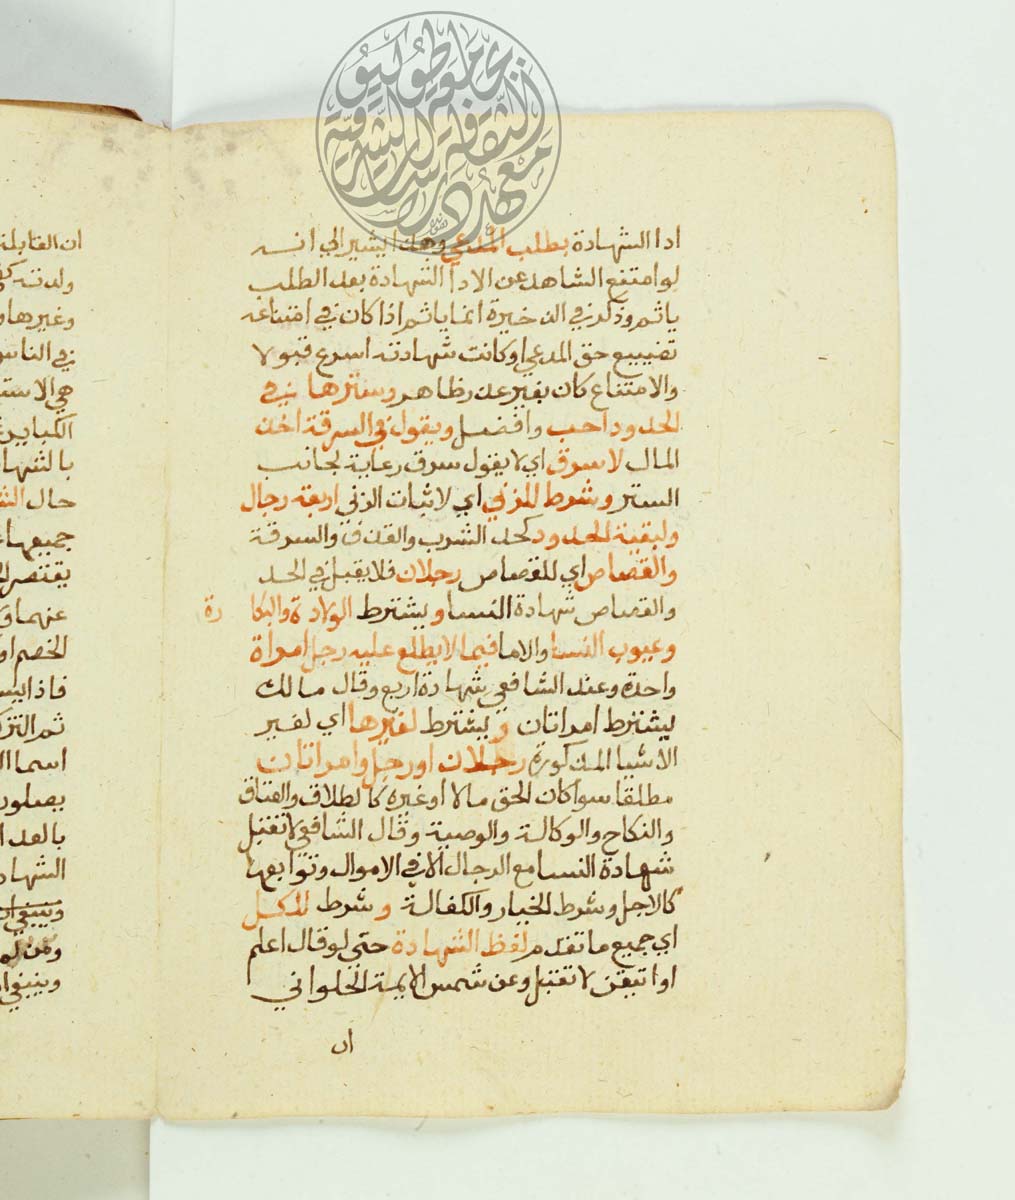 ادا الشهادة بطلب المدعي وهذا يشير الي انه
لو امتنع الشاهد عن الادا الشهادة بعد الطلب
ياثم وذكر في الذخيرة انما ياثم اذا كان في امتناعه
تضييع حق المدعي او كانت شهادته اسرع قبولا
والامتناع كان بغير عذر ظاهر وسترها في
الحدود احب وافضل ويقول في السرقة اخذ
المال لا سرق اي لا يقول سرق رعاية لجانب
الستر وشرط للزني اي لاثبات الزني اربعة رجال
ولبقية الحدود كحد الشرب والقذف والسرقة
والقصاص اي للقصاص رجلان فلا يقبل في الحد
والقصاص شهادة النسا ويشترط الولادة والبكارة
وعيوب النسا والاما فيما لا يطلع عليه رجل امراة
واحدة وعند الشافعي شهادة اربع وقال مالك
يشترط امراتان ويشترط لغيرها اي لغير
الاشيا المذكورة رجلان او رجل وامراتان
مطلقا سوا كان الحق مالا او غيره كالطلاق والعتاق
والنكاح والوكالة والوصية وقال الشافعي لا تقبل
شهادة النسا مع الرجال الا في الاموال وتوابعها
كالاجل وشرط الخيار والكفالة وشرط للكل
اي جميع ما تقدم لفظ الشهادة حتي لو قال اعلم
او اتيقن لا تقبل وعن شمس الايمة الحلواني
ان
ان القابلة
ولدته
وغيرها
في الناس
هي
الكباير
حال
جميعها
يقتصر
عنهما
الخصم
ثم
اسما
وينبغي